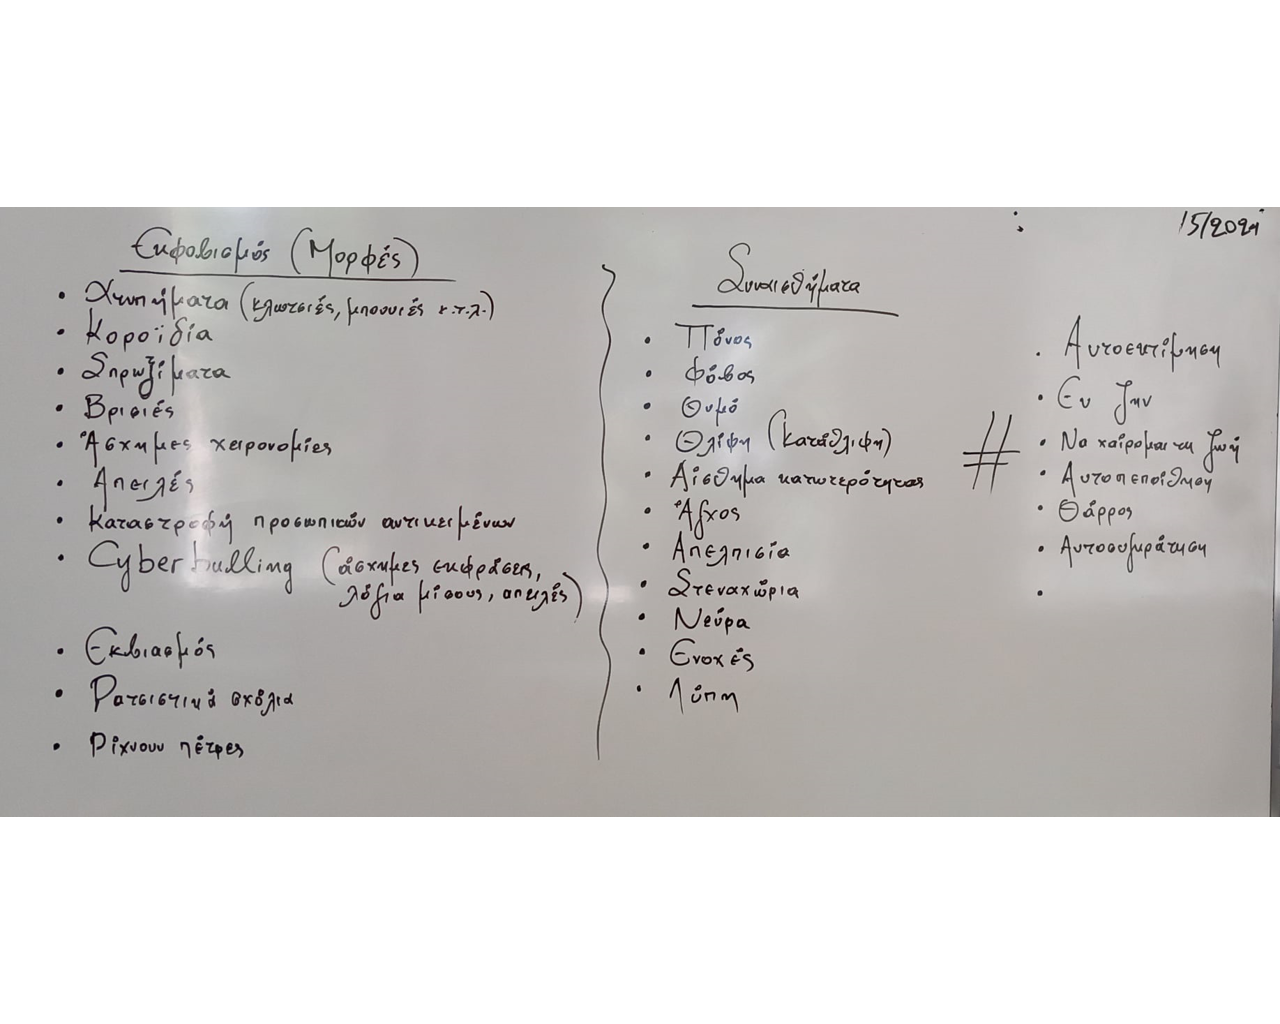 15/2021
Εκφοβισμός (Μορφές)
• Χτυπήματα (κλωτσιές, μπουνιές κ.τ.λ.)
• Κοροϊδία
• Σπρωξίματα
• Βρισιές
• Άσχημες χειρονομίες
• Απειλές
• Καταστροφή προσωπικών αντικειμένων
• Cyber bulling (άσχημες εκφράσεις,
λόγια μίσους, απειλές)
• Εκβιασμός
• Ρατσιστικά σχόλια
• Ρίχνουν πέτρες
Συναισθήματα
• Πόνος
• Φόβος
• Θυμό
• Θλίψη (κατάθλιψη)
• Αίσθημα κατωτερότητας
• Άγχος
• Απελπισία
• Στεναχώρια
• Νεύρα
• Ενοχές
• Λύπη
#
• Αυτοεκτίμηση
• Ευ ζην
• Να χαίρομαι τη ζωή
• Αυτοπεποίθηση
• Θάρρος
• Αυτοσυγκράτηση
•